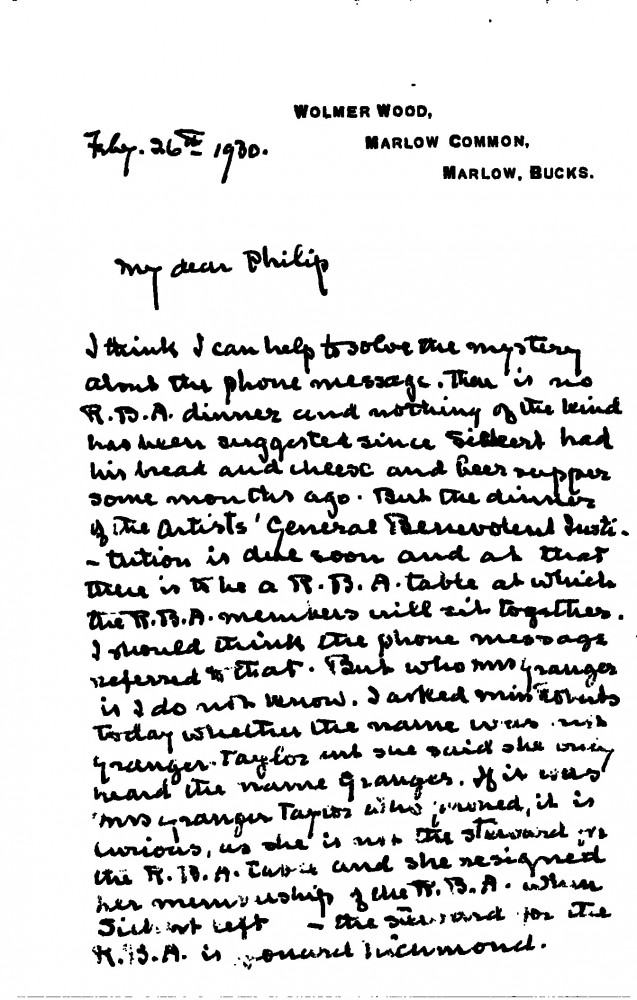 WOLMER WOOD,
Feby. 26th 1930.
MARLOW COMMON,
MARLOW, BUCKS.
My dear Philip
I think I can help to solve the mystery
about the phone message. There is no
R.B.A. dinner and nothing of the kind
has been suggested since Sickert had
his bread and cheese and beer supper
some months ago. But the dinner
of the Artists' General Benevolent Insti-
-tution is due soon and at that
there is to be a R.B.A. table at which
the R.B.A. members will sit together.
I should think the phone message
referred to that. But who Mrs Granger
is I do not know. I asked Miss Roberts
today whether the name was not
Granger-Taylor but she said she only
heard the name Granger. If it was
Mrs Granger Taylor who phoned, it is
curious, as she is not the steward for
the R.B.A. table and she resigned
her membership of the R.B.A. when
Sickert left - the steward for the
R.B.A. is Richmond.